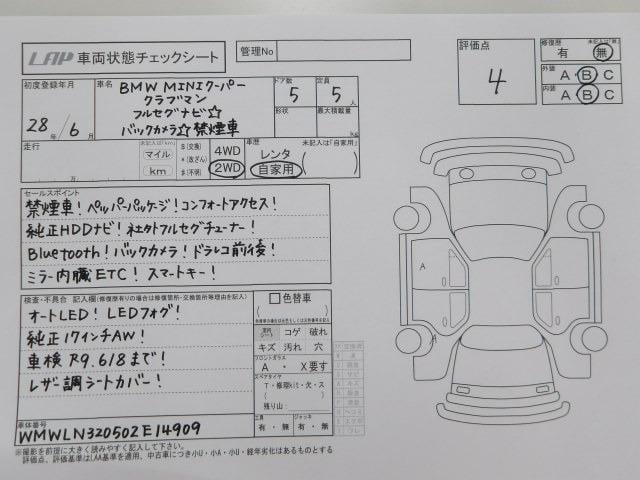 LAP 車両状態チェックシート
管理No
評価点
4
修復歴
未記入は「無」
有 無
外装 A・B・C
内装 A・B・C
初度登録年月
28年/6月
車名
BMW MINIクーパー
クラブマン
フルセグナビ☆
バックカメラ☆禁煙車
ドア数 5
定員 5人
形状
最大積載量
kg
走行
未記入は「km」
マイル
km
万
$(交換)
*(改ざん)
#(不明)
4WD
2WD
車歴
未記入は「自家用」
レンタ
自家用
セールスポイント
禁煙車!ペッパーパッケージ!コンフォートアクセス!
純正HDDナビ!社外フルセグチューナー!
Bluetooth!バックカメラ!ドラレコ前後!
ミラー内臓ETC!スマートキー!
検査・不具合 記入欄(修復歴有りの場合は修復箇所・交換箇所等理由を記入)
オートLED!LEDフォグ!
純正17インチAW!
車検R9.6/8まで!
レザー調シートカバー!
色替車
室内シート
コゲ 破れ
キズ 汚れ 穴
フロントガラス
A ・ X要す
スペアタイヤ
T・修理kit・欠・ス
残り山
工具
有・無
ジャッキ
有・無
A
A
車体番号
WMWLN320502E14909
※撮影を前提に大きく読みやすく記入して下さい。
評価点、評価基準はLAA基準を適用、中古車につき小U・小A・小U・経年劣化はあるものとする